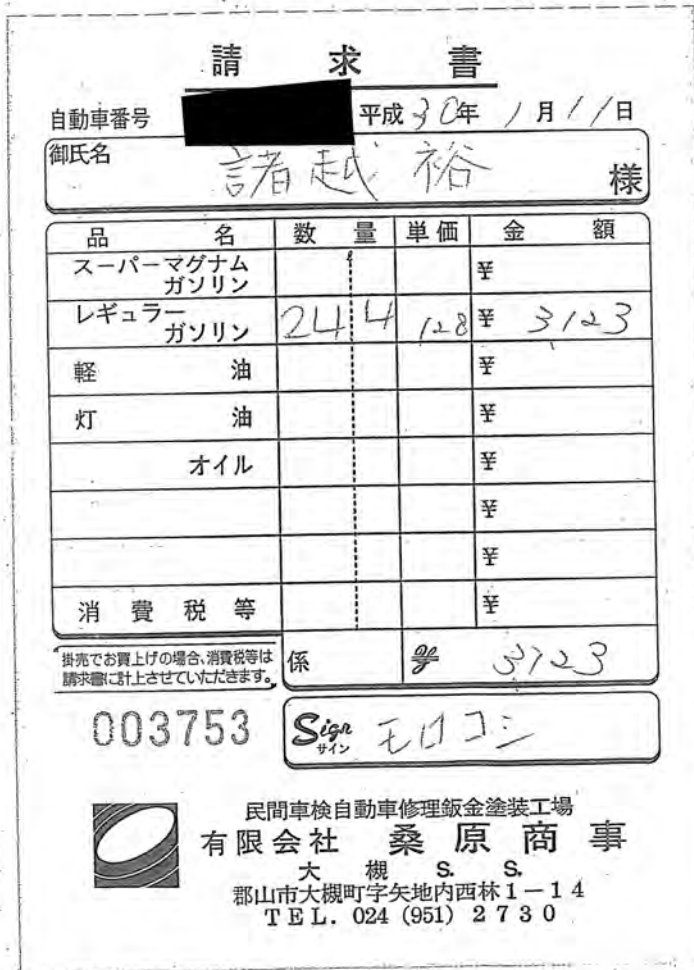 請求書
自動車番号 平成30年1月11日
御氏名 諸越 裕 様
品名 数量 単価 金額
スーパーマグナムガソリン ¥
レギュラーガソリン 24 4 128 ¥ 3123
軽油 ¥
灯油 ¥
オイル ¥
¥
¥
消費税等 ¥
掛売でお買上げの場合、消費税等は
請求書に計上させていただきます。
係 3123
003753
Sign サイン モロコシ
民間車検自動車修理鈑金塗装工場
有限会社 桑原商事
大槻 S. S.
郡山市大槻町字矢地内西林1-14
TEL. 024 (951) 2730